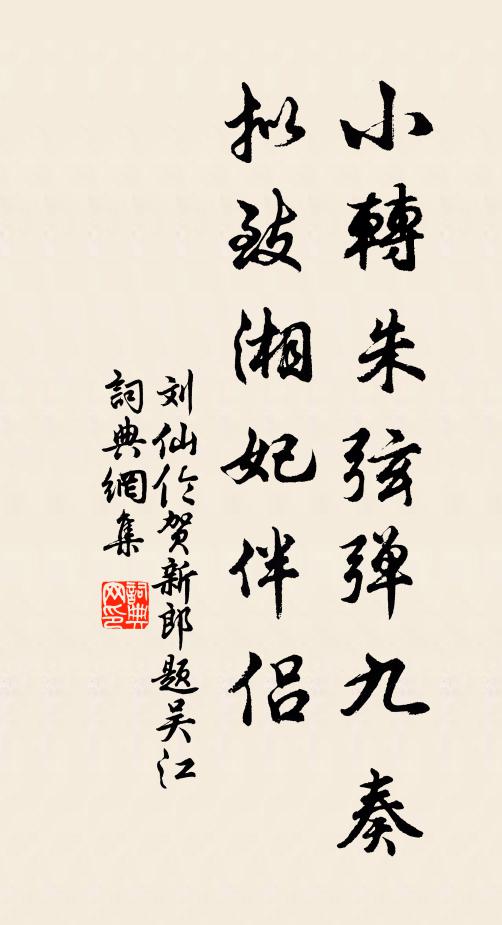 小轉朱弦弹九奏
拟致湘妃伴侣
刘仙伦贺新郎题吴江
詞典網集
詞典网印